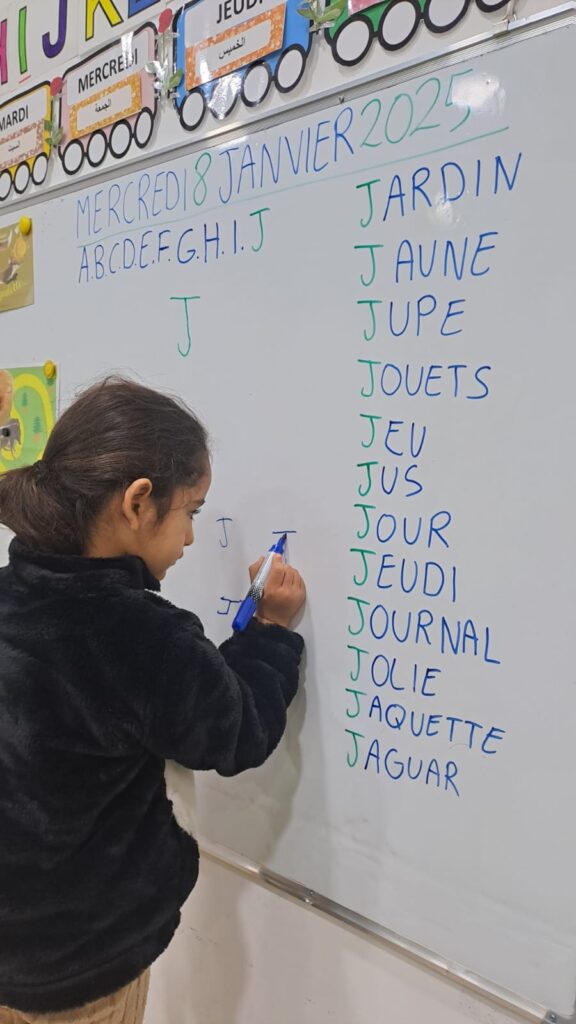 H I J K
MARDI
السبت
MERCREDI
الجمعة
JEUDI
الخميس
MERCREDI 8 JANVIER 2025
A.B.C.D.E.F.G.H.I.J
J
J J
J
JARDIN
JAUNE
JUPE
JOUETS
JEU
JUS
JOUR
JEUDI
JOURNAL
JOLIE
JAQUETTE
JAGUAR